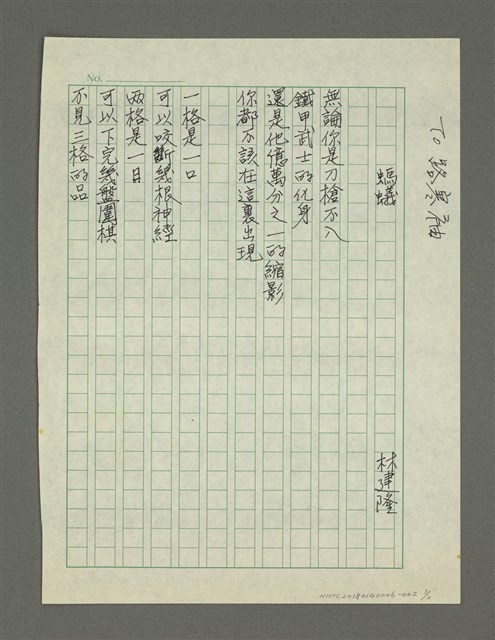 To 路寒袖
螞蟻
林建隆
無論你是刀槍不入
鐵甲武士的化身
還是他億萬分之一的縮影
你都不該在這裏出現
一格是一口
可以咬斷幾根神經
两格是一日
可以下完幾盤圍棋
不見三格的品
No.
NMTL20180140006-002 1/2